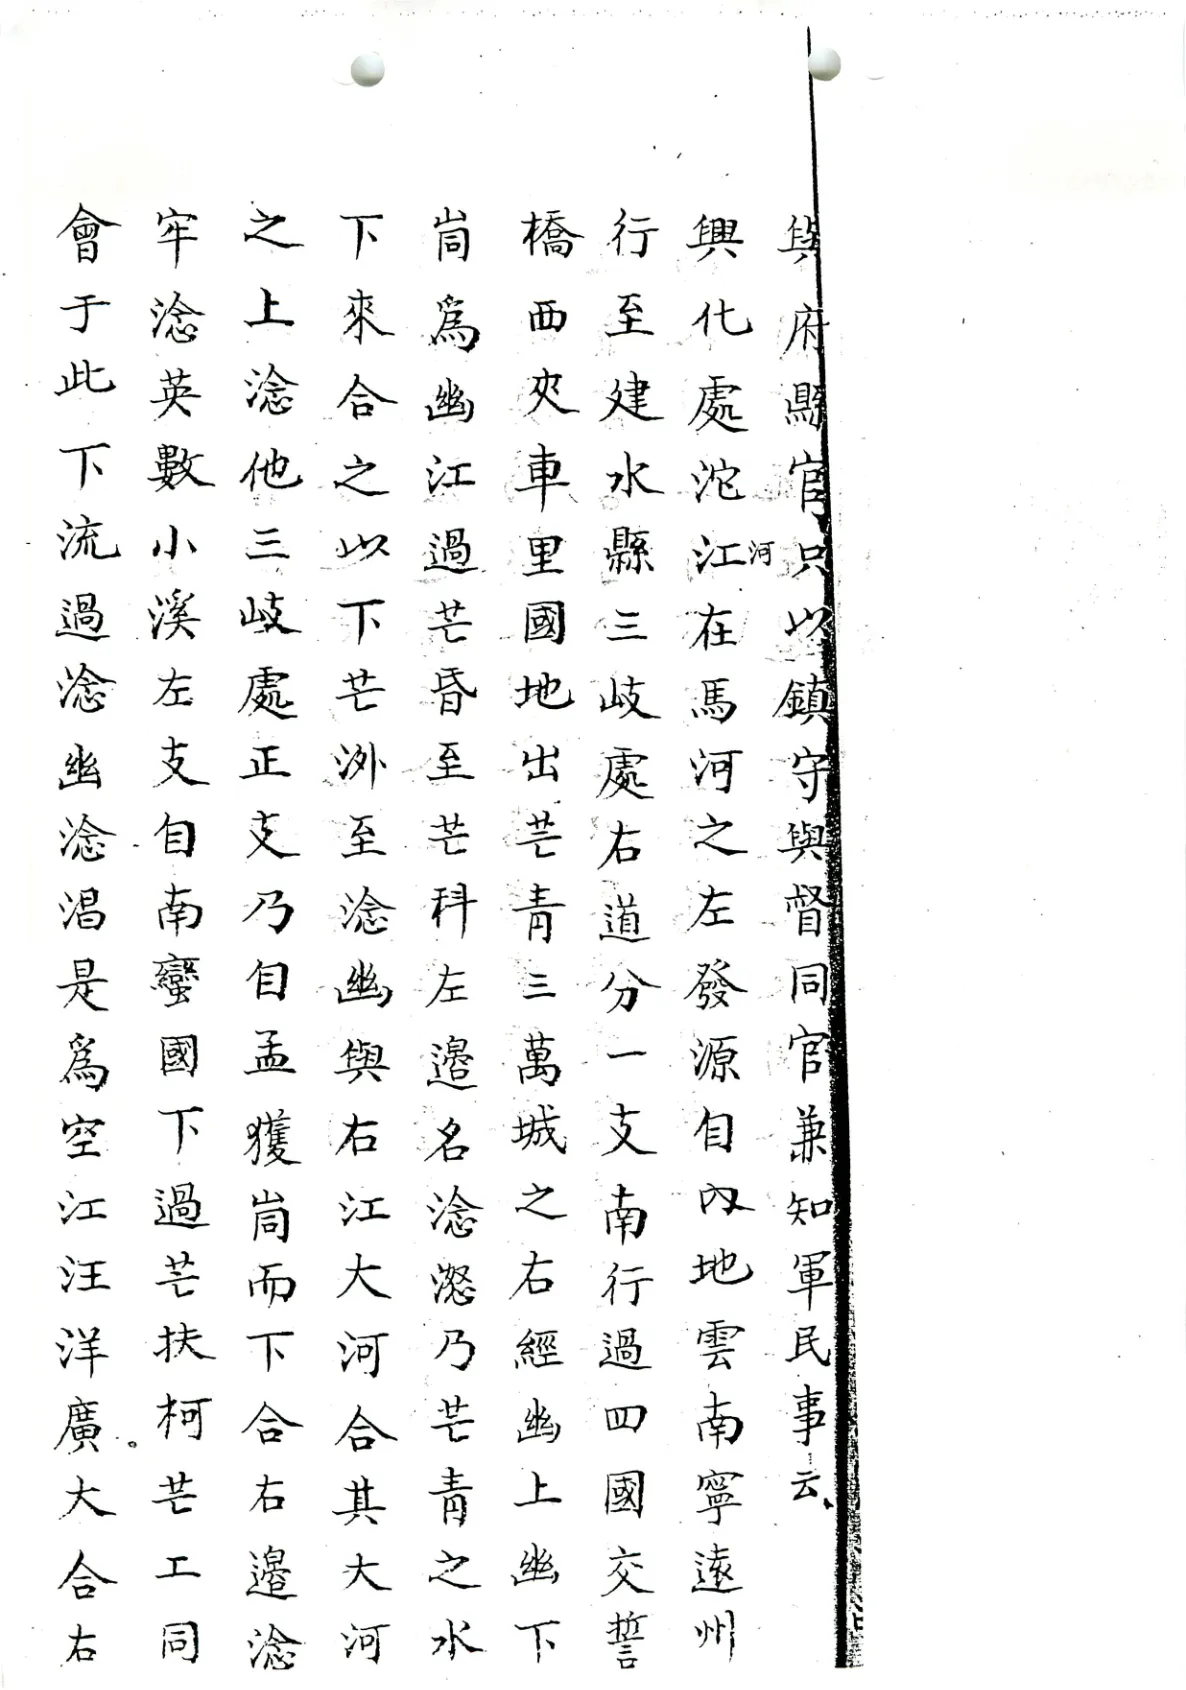 與府縣官只以鎮守與督同官兼知軍民事云
興化處沱江河在馬河之左發源自内地雲南寧遠州
行至建水縣三岐處右道分一支南行過四國交誓
橋西夾車里國地出芒青三萬城之右經幽上幽下
峝爲幽江過芒昏至芒科左邉名淰𣹕乃芒青之水
下來合之以下芒洲至淰幽與右江大河合其大河
之上淰他三岐處正支乃自孟獲峝而下合右邉淰
牢淰英數小溪左支自南蠻國下過芒扶柯芒工同
會于此下流過淰幽淰淐是爲空江汪洋廣大合右